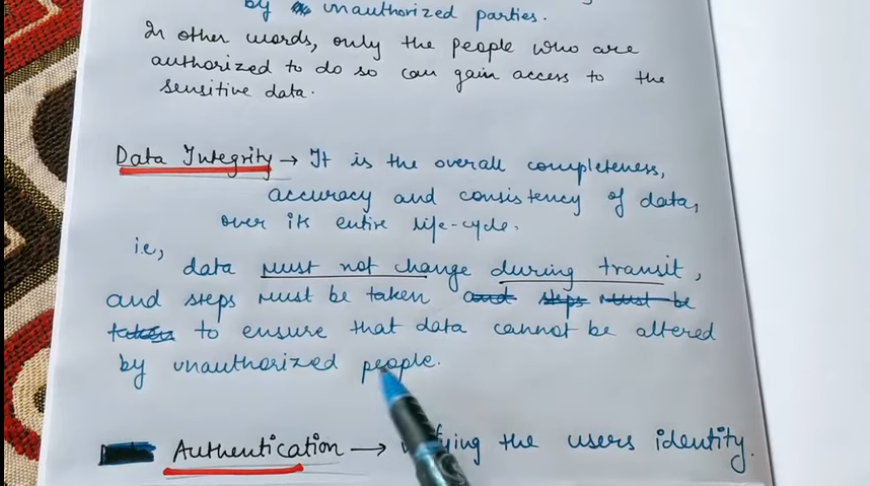 by unauthorized parties.
In other words, only the people who are
authorized to do so can gain access to the
sensitive data.
Data Integrity → It is the overall completeness,
accuracy and consistency of data,
over its entire life-cycle.
i.e,
data must not change during transit,
and steps must be taken and steps must be
taken to ensure that data cannot be altered
by unauthorized people.
Authentication → the users identity.